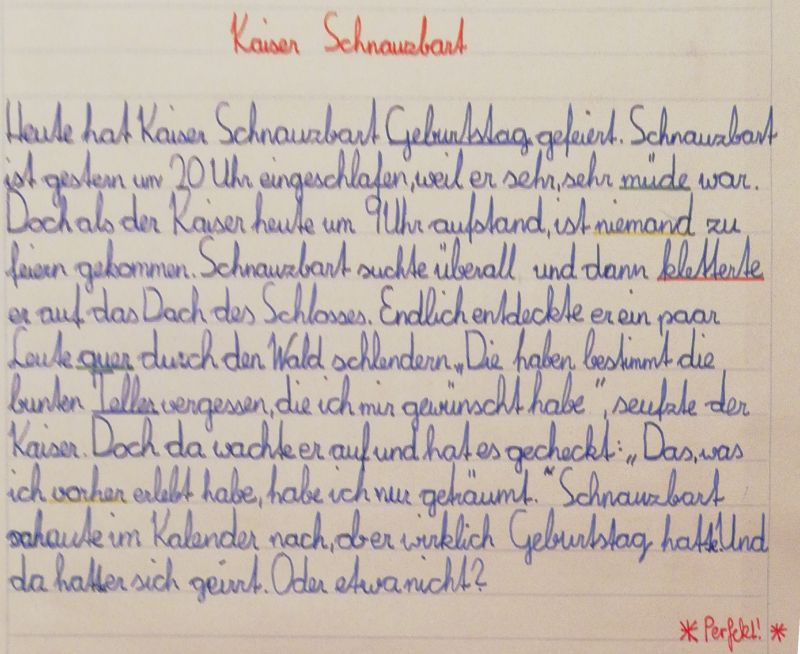 Kaiser Schnauzbart
Heute hat Kaiser Schnauzbart Geburtstag gefeiert. Schnauzbart
ist gestern um 20 Uhr eingeschlafen, weil er sehr, sehr müde war.
Doch als der Kaiser heute um 9 Uhr aufstand, ist niemand zu
feiern gekommen. Schnauzbart suchte überall und dann kletterte
er auf das Dach des Schlosses. Endlich entdeckte er ein paar
Leute quer durch den Wald schlendern. „Die haben bestimmt die
bunten Teller vergessen, die ich mir gewünscht habe“, seufzte der
Kaiser. Doch da wachte er auf und hat es gecheckt: „Das, was
ich vorher erlebt habe, habe ich nur geträumt.“ Schnauzbart
schaute im Kalender nach, ob er wirklich Geburtstag hatte. Und
da hat er sich geirrt. Oder etwa nicht?
* Perfekt! *